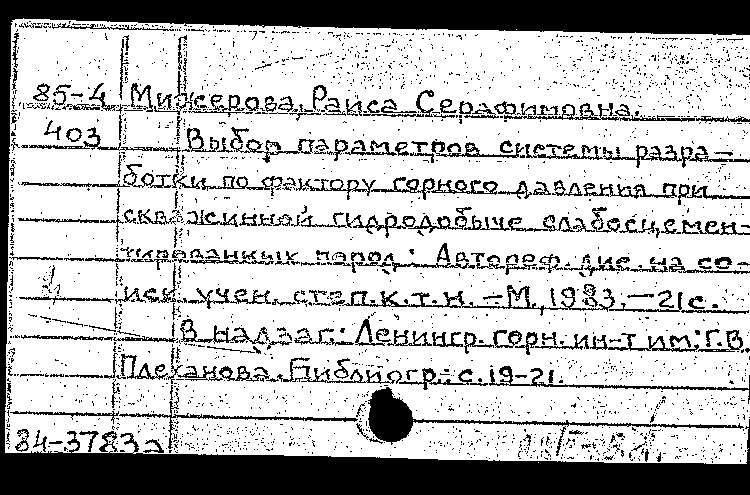 85-4 Мижерова, Раиса Серафимовна.
403 Выбор параметров системы разра-
ботки по фактору горного давления при
скважинной гидродобыче слабосцемен-
тированных пород: Автореф. дис. на со-
иск. учен. степ. к.т.н. -М., 1983. -21с.
В надзаг.: Ленингр. горн. ин-т им. Г.В.
Плеханова. Библиогр.: с. 19-21.
84-3783а